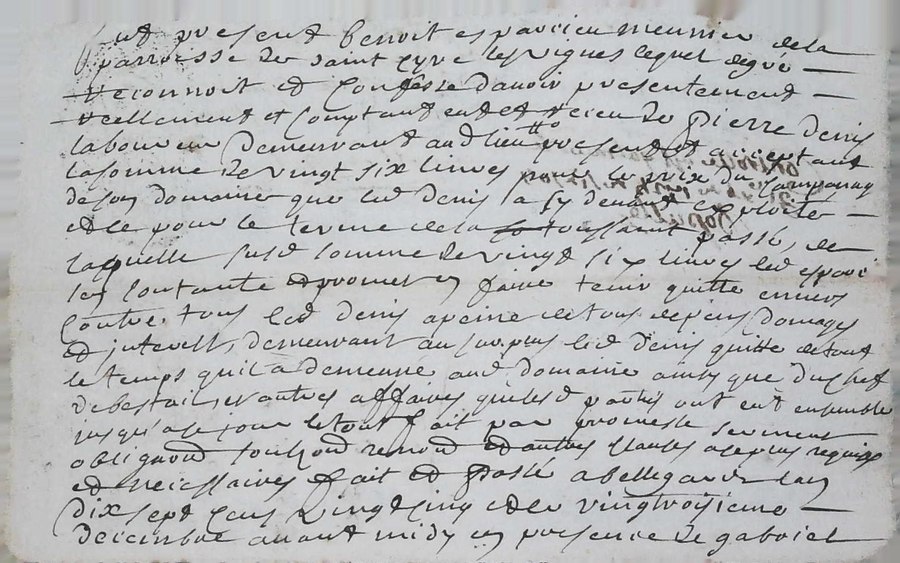 fut present benoit esparcieu meunier de la
parroisse de saint cyre les vignes lequel de gré
reconnoit et confesse d'avoir presentement
reellement et comptant eut et receu de pierre denis
laboureur demeurant aud lieu present et acceptant
la somme de vingt six livres pour le prix du
de son domaine que led denis a sy devant exploité
et le pour le terme de la toussaint passé, de
laquelle susd somme de vingt six livres led esparci
se contante et promet en faire tenir quitte envers
contre tous led denis a peine de tous depens domages
et interest, demeurant au surplus led denis quitte de tout
le temps quil a demeuré aud domaine ainsy que du chef
de bestail, et autres affaires que lesd parties ont eut ensemble
jusqu'a ce jour le tout fait par promesse serment
obligaon soubzon renond et autres clauses a ce plus requises
et necessaires fait et passé a bellegarde lan
dix sept cens vingt cinq et le vingtroisieme
decembre avant midy en presence de gabriel